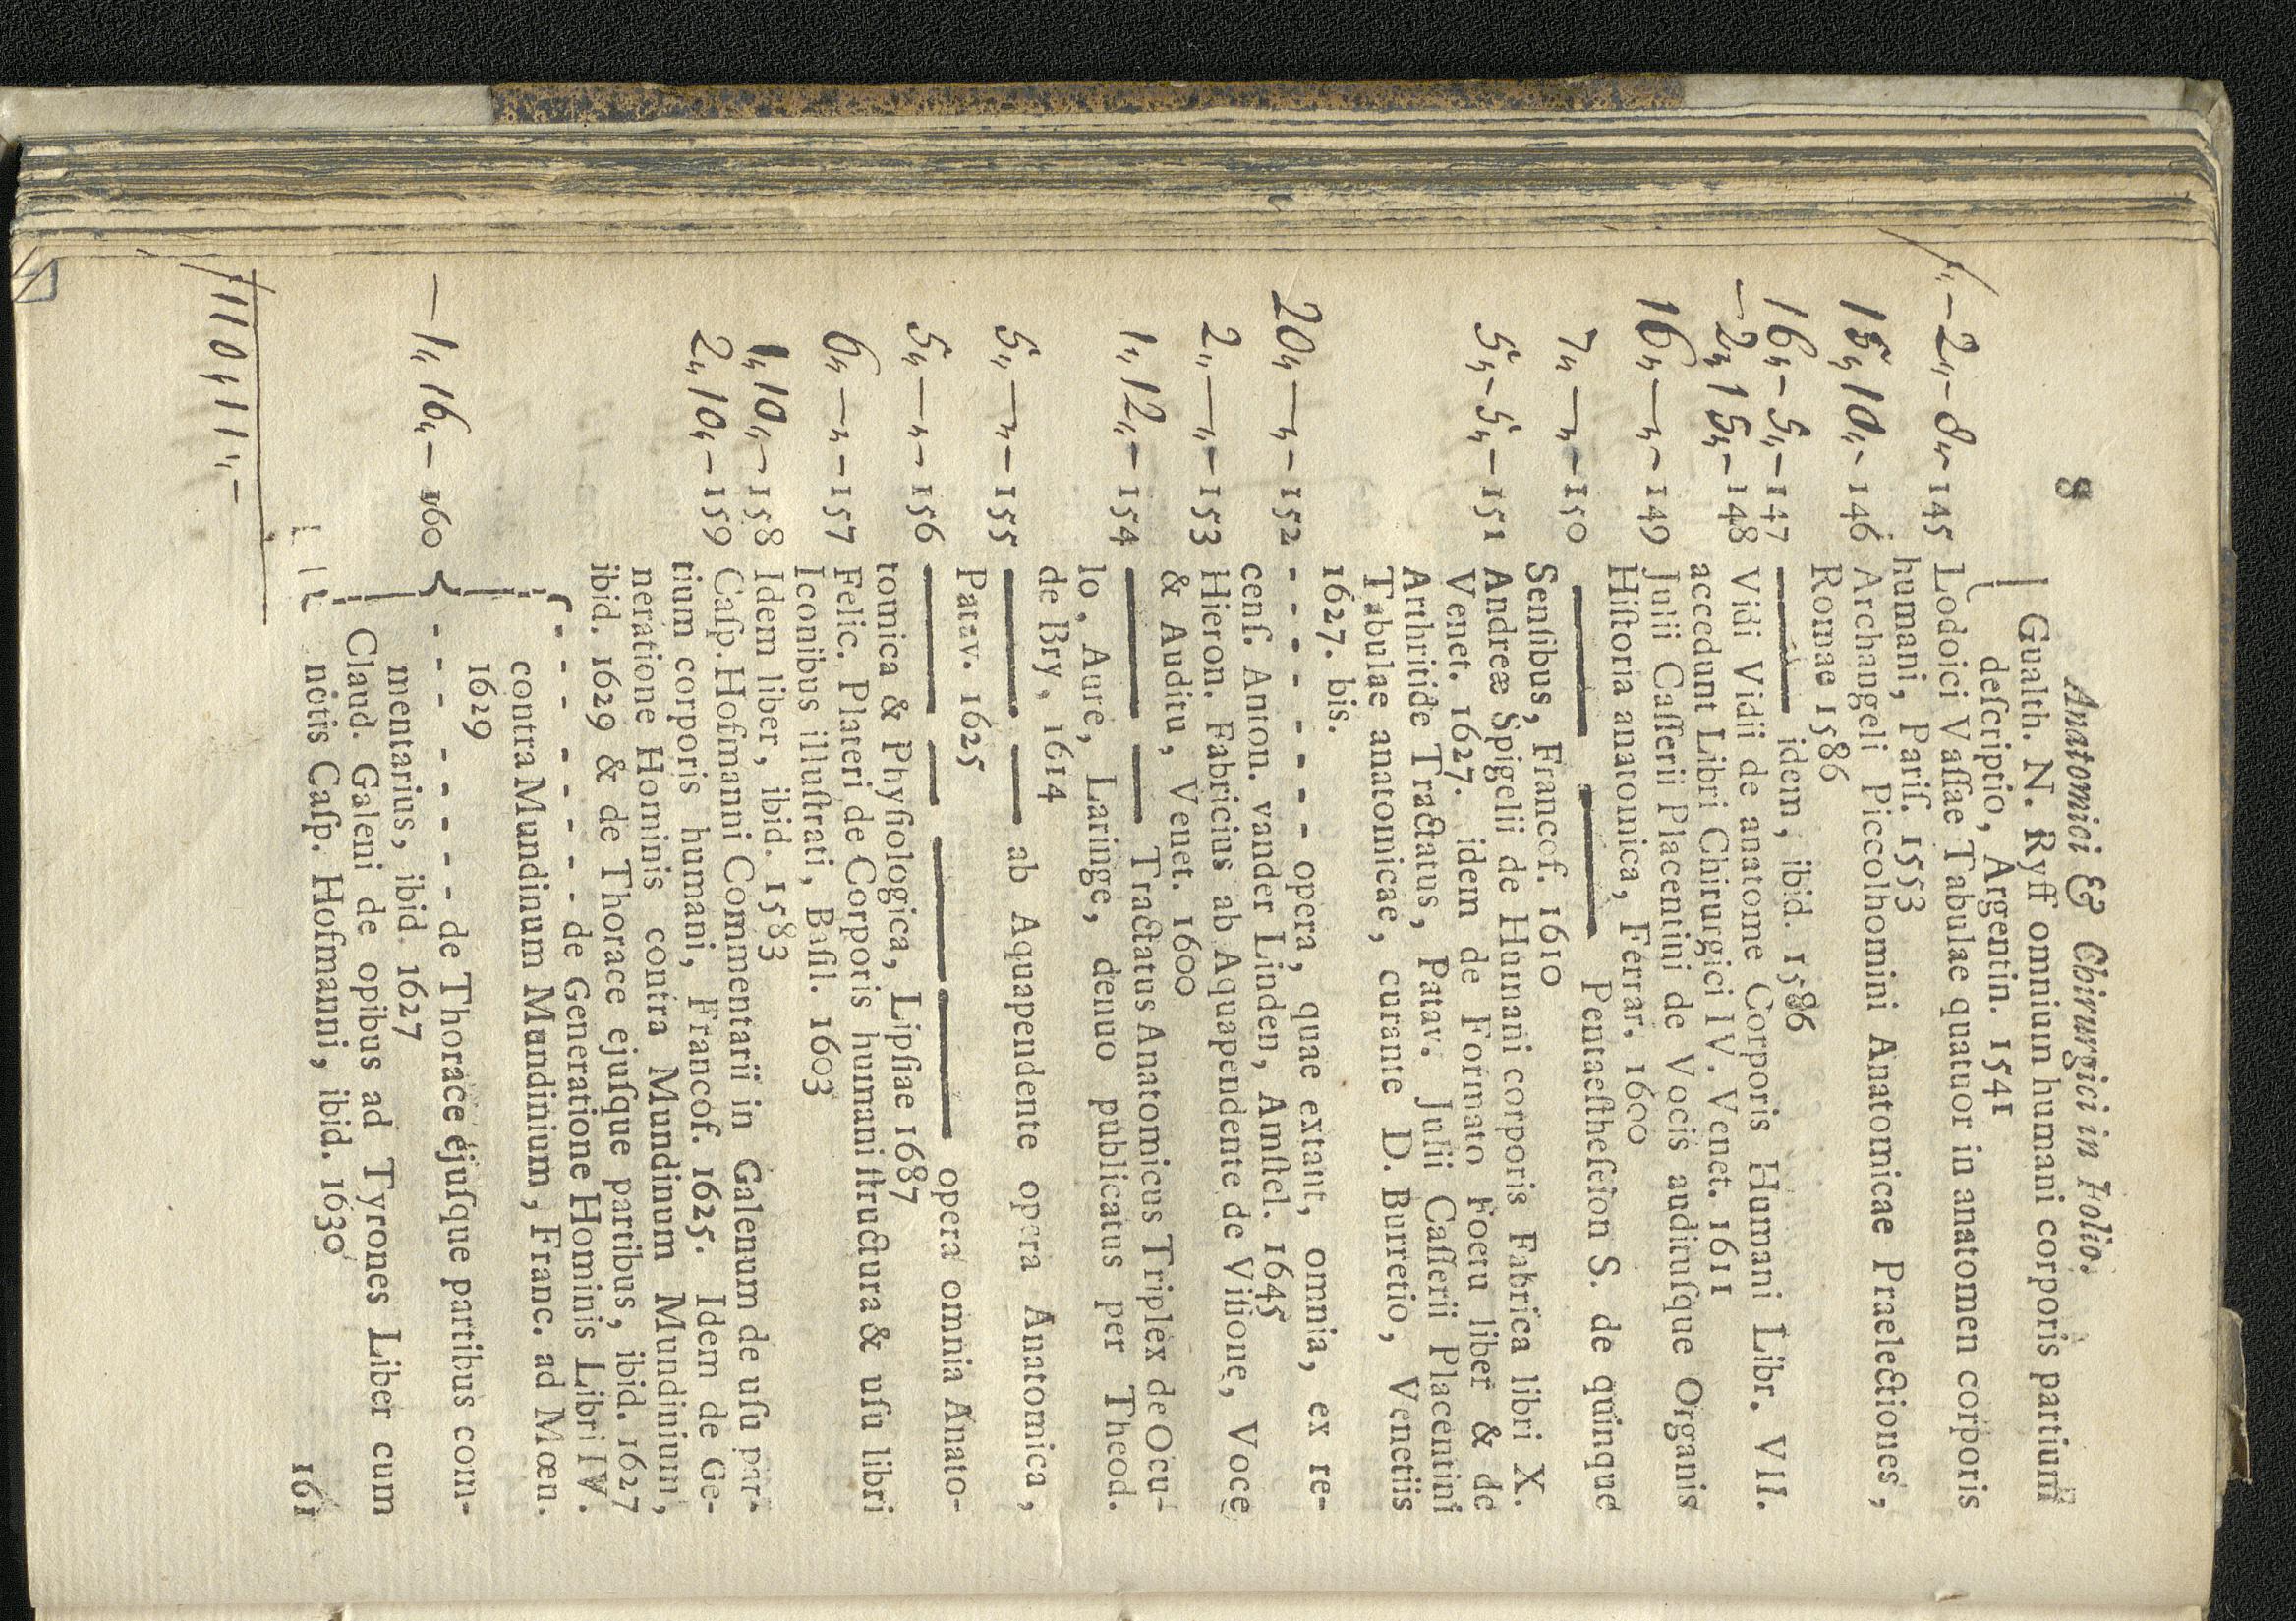 8
Anatomici & Chirurgici in Folio.
Gualth. N. Ryff omnium humani corporis partium
deſcriptio, Argentin. 1541
1,,-2,,-8,,-145 Lodoici Vaſſae Tabulae quatuor in anatomen corporis
humani, Pariſ. 1553
10,,-146 Archangeli Piccolhomini Anatomicae Praelectiones,
Romae 1586
16,,-5,,-147 —— idem, ibid. 1586
-2,,15,,-148 Vidi Vidii de anatome Corporis Humani Libr. VII.
accedunt Libri Chirurgici IV. Venet. 1611
16,,—,,-149 Julii Caſſerii Placentini de Vocis auditusque Organis
Hiſtoria anatomica, Ferrar. 1600
7,,—,,-150 —— —— Pentaeſtheſeion S. de quinque
Senſibus, Francof. 1610
5,,-5,,-151 Andreæ Spigelii de Humani corporis Fabrica libri X.
Venet. 1627. idem de Formato Foetu liber & de
Arthritide Tractatus, Patav. Julii Caſſerii Placentini
Tabulae anatomicae, curante D. Burretio, Venetiis
1627. bis.
20,,—,,-152 - - - - - - - opera, quae extant, omnia, ex re-
cenſ. Anton. vander Linden, Amſtel. 1645
2,,—,,-153 Hieron. Fabricius ab Aquapendente de Viſione, Voce
& Auditu, Venet. 1600
1,,12,,-154 —— —— Tractatus Anatomicus Triplex de Ocu-
lo, Aure, Laringe, denuo publicatus per Theod.
de Bry, 1614
5,,—,,-155 —— —— ab Aquapendente opera Anatomica,
Patav. 1625
5,,—,,-156 —— —— —— —— opera omnia Anato-
tomica & Phyſiologica, Lipſiae 1687
6,,—,,-157 Felic. Plateri de Corporis humani ſtructura & uſu libri
Iconibus illuſtrati, Baſil. 1603
1,,10,,-158 Idem liber, ibid. 1583
2,,10,,-159 Caſp. Hofmanni Commentarii in Galenum de uſu par-
tium corporis humani, Francof. 1625. Idem de Ge-
neratione Hominis contra Mundinum Mundinium,
ibid. 1629 & de Thorace ejuſque partibus, ibid. 1627
- - - - - - de Generatione Hominis Libri IV.
contra Mundinum Mundinium, Franc. ad Mœn.
1629
-1,,16,,-160 - - - - - - de Thorace ejuſque partibus com-
mentarius, ibid. 1627
Claud. Galeni de opibus ad Tyrones Liber cum
notis Caſp. Hofmanni, ibid. 1630
161